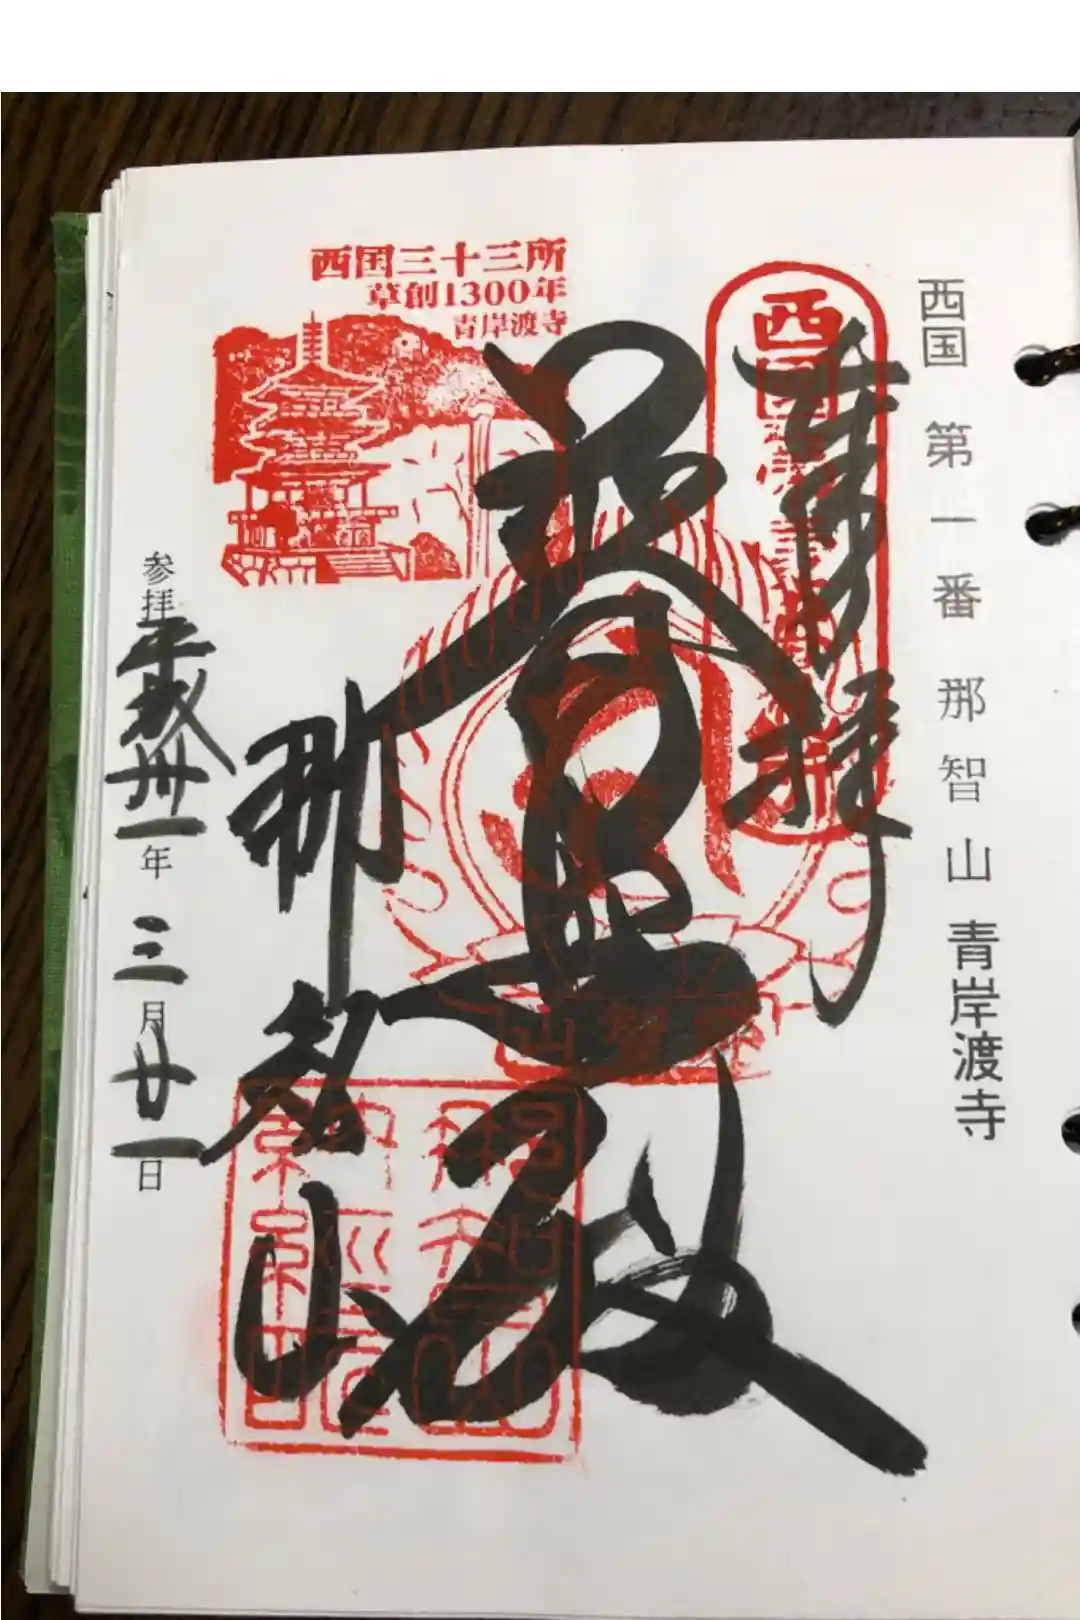 西国 第一番 那智山 青岸渡寺
奉拝
西国三十三所
草創1300年
青岸渡寺
普照殿
那智山
参拝平成卅一年三月廿一日